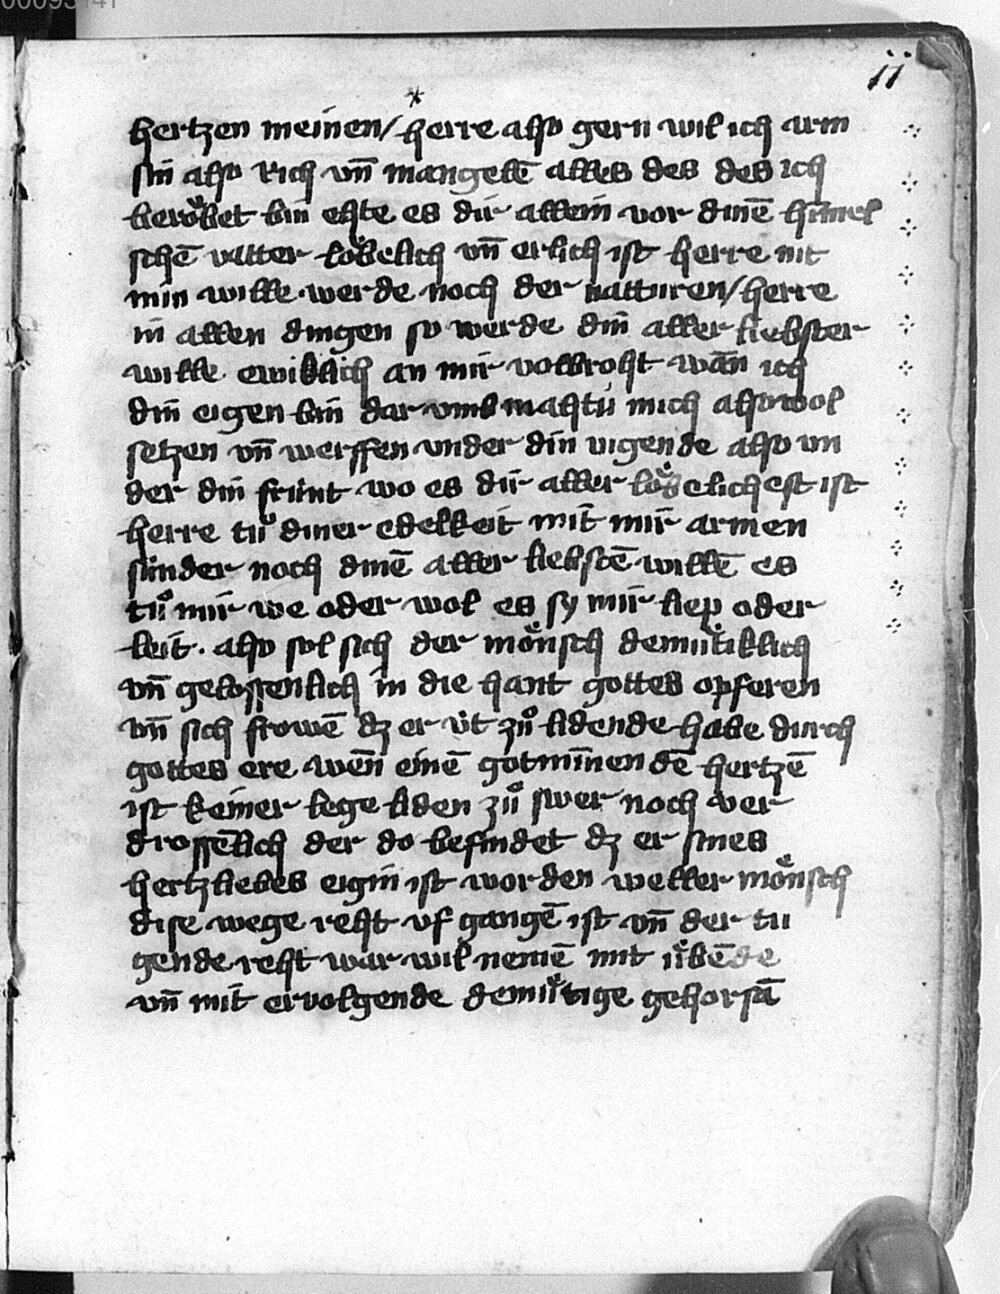 11
hertzen meinen/ herre also gern wil ich arm
sin also rich vn̄ mangelē alles des des ich
beroͤbet bin ehte es dir allein vor dinē himel
schē vatter loͤbelich vn̄ erlich ist herre nit
min wille werde noch der natturen/ herre
in allen dingen so werde din aller liebster
wille ewiklich an mir volbroht wān ich
din eigen bin dar vmb mahtu mich also wol
setzen vn̄ werffen vnder din vigende also vn
der din frünt wo es dir aller loͤbelichest ist
herre tuͦ diner edelkeit mit mir armen
sünder noch dinē aller liebstē willē es
tuͦ mir we oder wol es sy mir liep oder
leit. also sol sich der moͤnsch demuͤtiklich
vn̄ gelossenlich in die hant gottes opferen
vn̄ sich frowē dz er üt zuͦ lidende habe durch
gottes ere wēn einē gotmīnendē hertzē
ist keiner lege liden zuͦ swer noch ver
drossēlich der do befindet dz er sines
hertzliebes eigin ist worden weller moͤnsch
dise wege reht vf gangē ist vn̄ der tu
gende reht war wil nemē mit uͤbēde
vn̄ mit ervolgende demuͤtige gehorsā